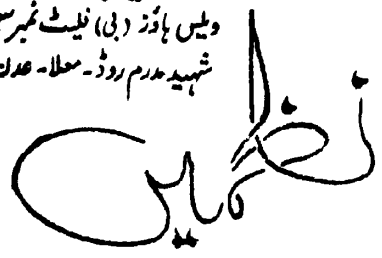 ویلس ہاؤز (بی) فلیٹ نمبر
شہید مدرم روڈ۔ معلا۔ عدن
نظمیں